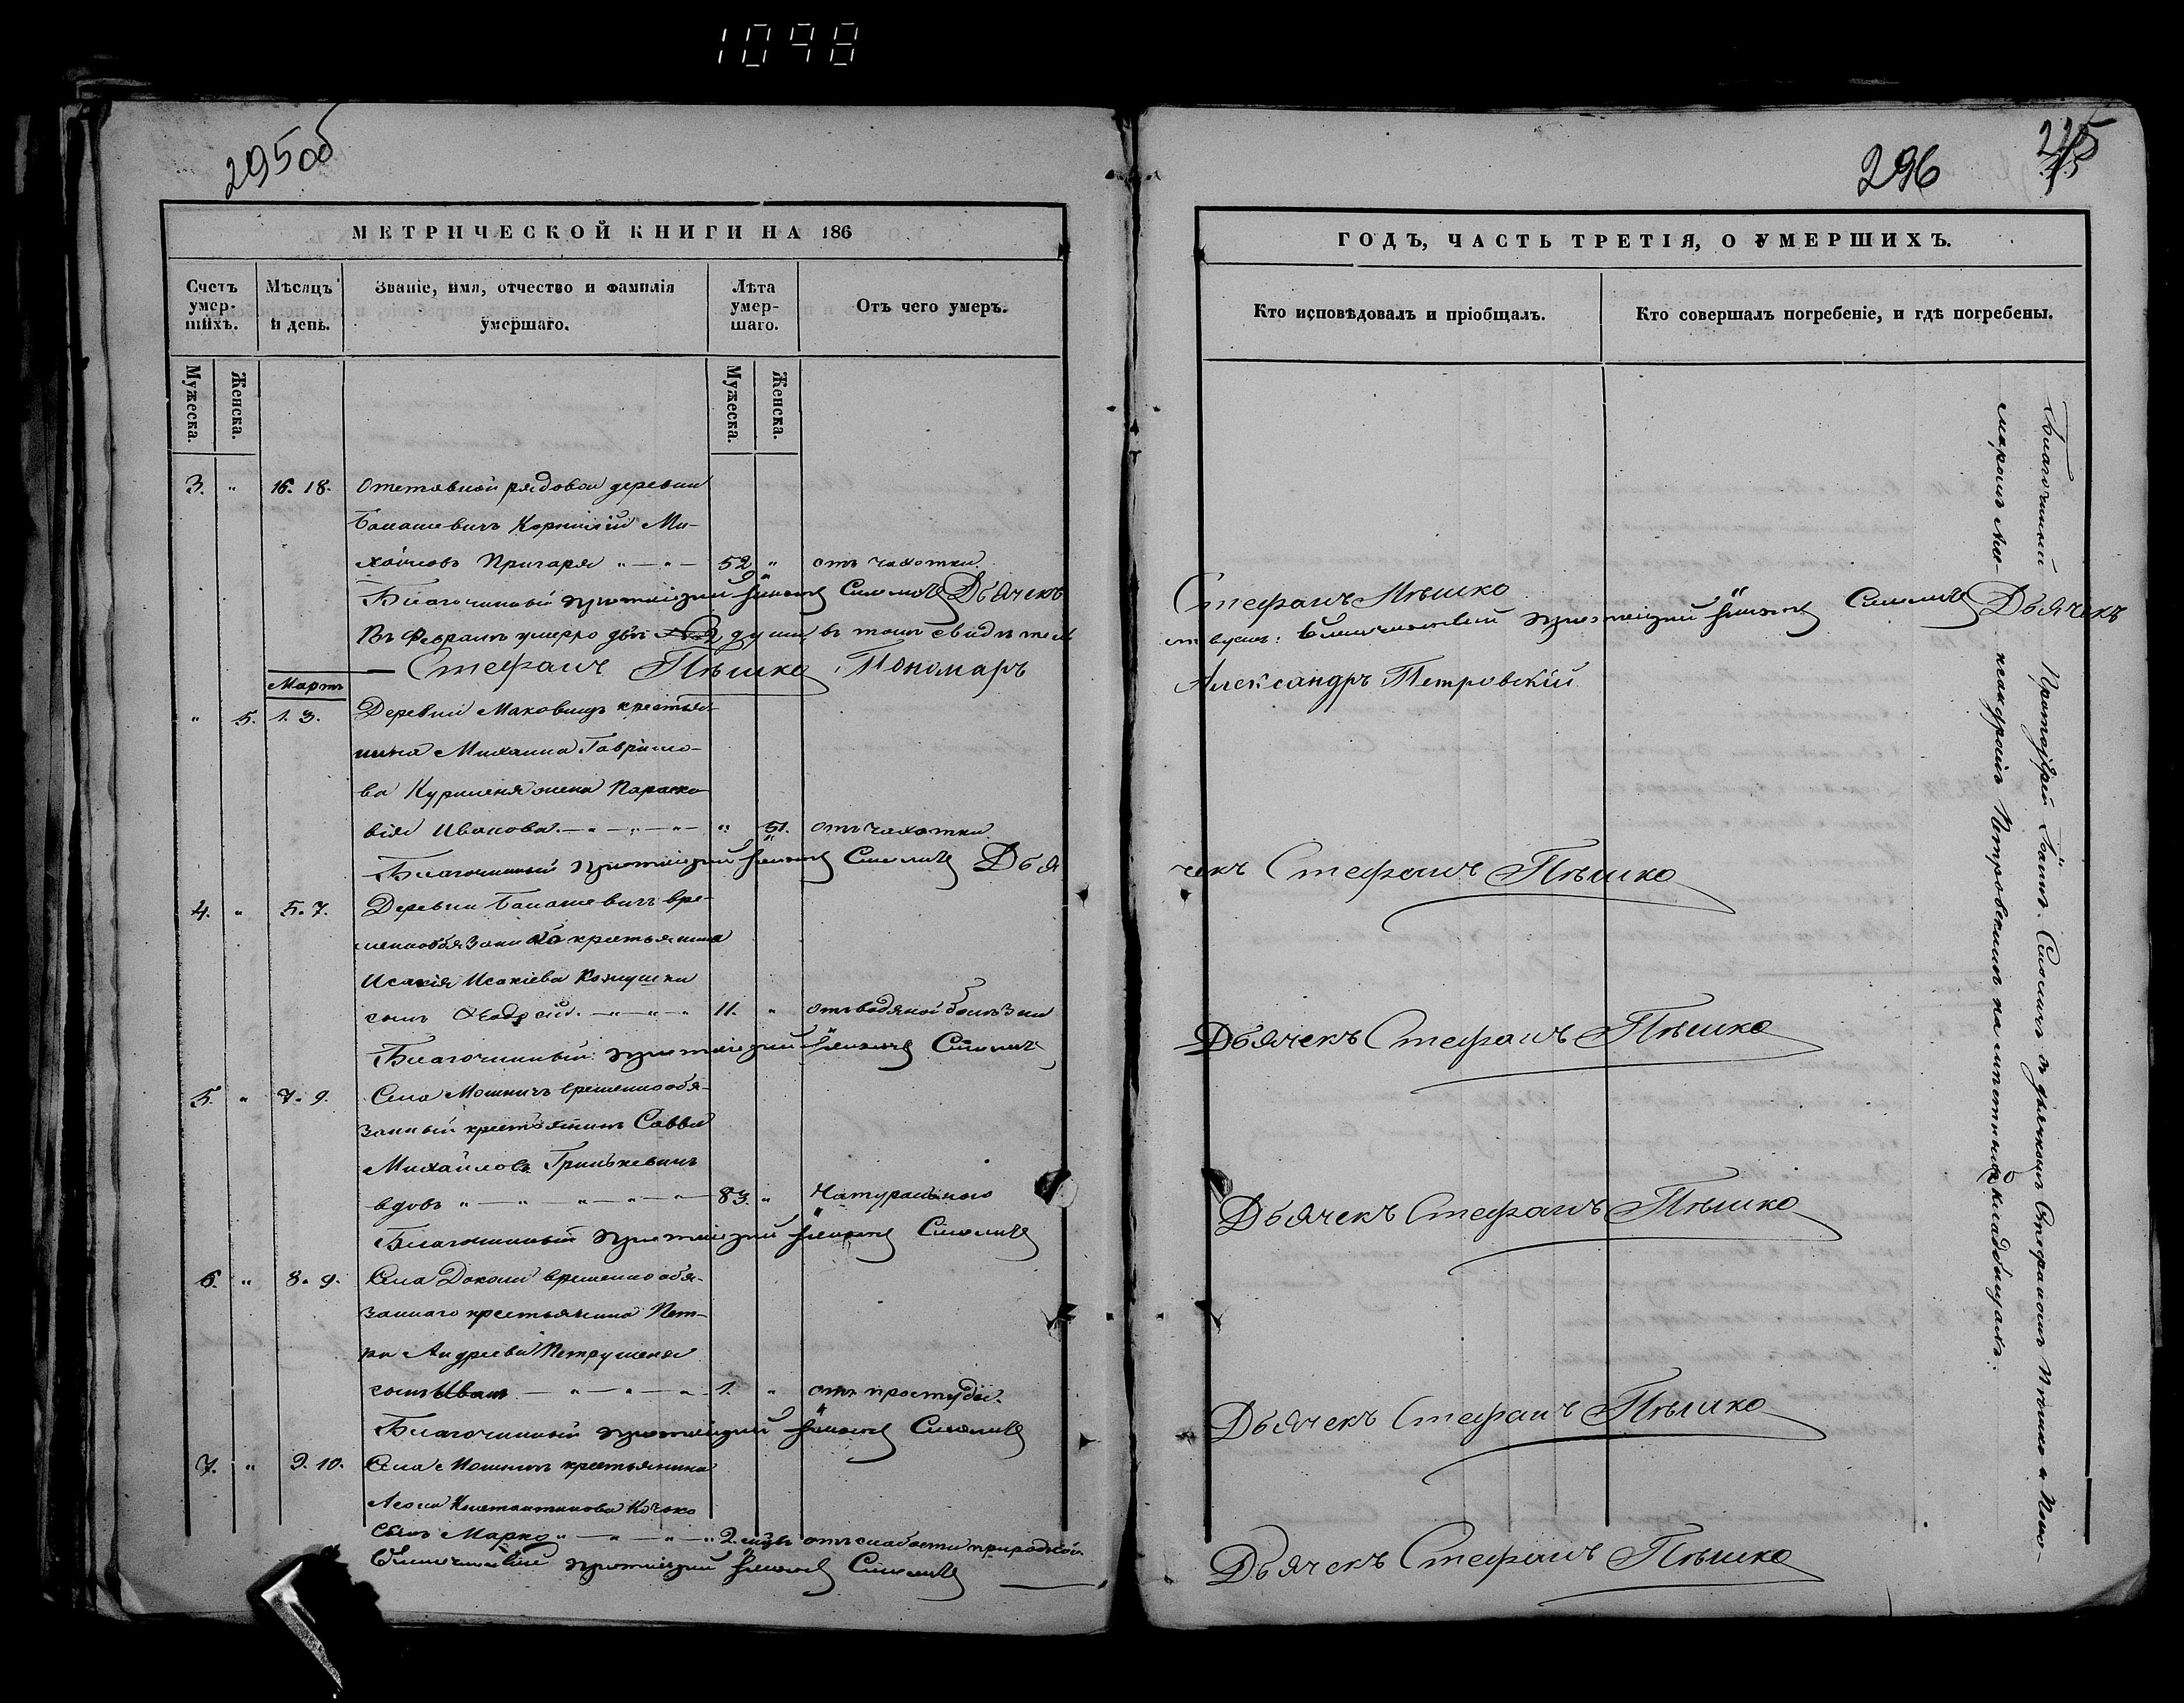 1098
295об
МЕТРИЧЕСКОЙ КНИГИ НА 186
Счетъ умер-шихъ.
Мѣсяцъ и день.
Званіе, имя, отчество и фамилія умершаго.
Лѣта умер-шаго.
Отъ чего умеръ.
Мужеска.
Женска.
Мужеска.
Женска.
3. " 16. 18. Отставной рядовой деревни
Балашевичъ Корнилій Ми-
хайловъ Пригаря " — " — 52 " отъ чахотки.
Благочинный протоіерей Іоаннъ Смоличъ Дьячекъ
Въ Февралѣ умерло двѣ 2 души въ томъ свидѣтел
Стефанъ Пѣшко, Пономарь
Мартъ
" 5. 1. 3. Деревни Маковищъ крестья-
нина Михаила Гаврило-
ва Курленя жена Параско-
вія Иванова. — " — " — " — " 51. отъ чахотки
Благочинный протоіерей Іоаннъ Смоличъ Дья
4. " 5. 7. Деревни Балашевичъ вре-
меннообязаннаго крестьянина
Исакія Исакіева
сынъ Андрей. — " — " — " 11. " отъ водяной болѣзни
Благочинный: протоіерей Іоаннъ Смоличъ
5. " 7. 9. Села Мошничъ временнообя-
занный крестьянинъ Савва
Михайловъ Гринькевичъ
вдовъ " — " — " — " — " — 83. " Натурально
Благочинный протоіерей Іоаннъ Смоличъ
6. " 8. 9. Села Доколи временнообя-
заннаго крестьянина Пет-
ра Андреева Петрушеня
сынъ Иванъ — " — " — " — 1. " отъ простуды.
Благочинный протоіерей Іоаннъ Смоличъ
7. " 9. 10. Села Мошничъ крестьянина
Леона Константинова Кочко
сынъ Марко " — " — " — " 2. мзъ отъ слабости природной.
Благочинный протоіерей Іоаннъ Смоличъ
296
215
ГОДЪ, ЧАСТЬ ТРЕТІЯ, О УМЕРШИХЪ.
Кто исповѣдовалъ и пріобщалъ.
Кто совершалъ погребеніе, и гдѣ погребены.
Стефанъ Пѣшко
ствуемъ: Благочинный протоіерей Іоаннъ Смоличъ Дьячекъ
Александръ Петровскій
чекъ Стефанъ Пѣшко
Дьячекъ Стефанъ Пѣшко
Дьячекъ Стефанъ Пѣшко
Дьячекъ Стефанъ Пѣшко
Дьячекъ Стефанъ Пѣшко
Благочинный Протоіерей Іоаннъ Смоличъ съ дьячкомъ Стефаномъ Пѣшко и Поно-
маромъ Але-ксандромъ Петровскимъ на мѣстныхъ кладбищахъ.